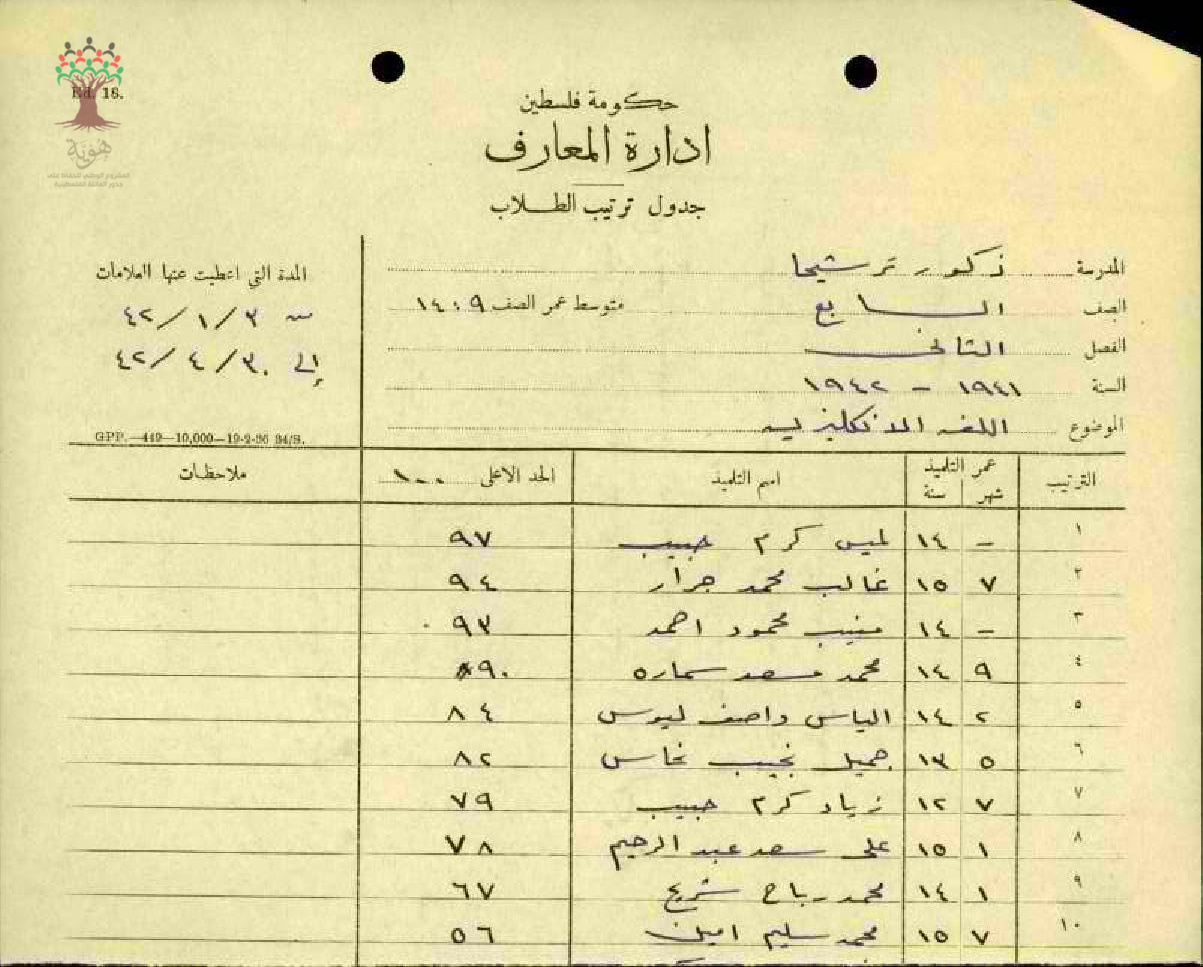 Ed. 18.
هوية
المشروع الوطني للحفاظ على
جذور العائلة الفلسطينية
حكومة فلسطين
ادارة المعارف
جدول ترتيب الطلاب
المدرسة ذكور ترشيحا
الصف السابع متوسط عمر الصف ١٤٠٩
الفصل الثاني
السنة ١٩٤١ - ١٩٤٢
الموضوع اللغة الانكليزية
المدة التي اعطيت عنها العلامات
من ٣/١/٤٢
إلى ٣٠/٤/٤٢
GPP.—449—10,000—19-2-36 34/S.
الترتيب عمر التلميذ شهر سنة اسم التلميذ الحد الاعلى ١٠٠ ملاحظات
١ - ١٤ لميس كرم حبيب ٩٧
٢ ٧ ١٥ غالب محمد جرار ٩٤
٣ - ١٤ منيب محمود احمد ٩٣
٤ ٩ ١٤ محمد مسعد سماره ٩٠
٥ ٢ ١٤ الياس واصف ليوس ٨٤
٦ ٥ ١٣ جميل نجيب نحاس ٨٢
٧ ٧ ١٢ زياد كرم حبيب ٧٩
٨ ١ ١٥ علي سعد عبد الرحيم ٧٨
٩ ١ ١٤ محمد رباح شريح ٦٧
١٠ ٧ ١٥ محمد سليم امين ٥٦